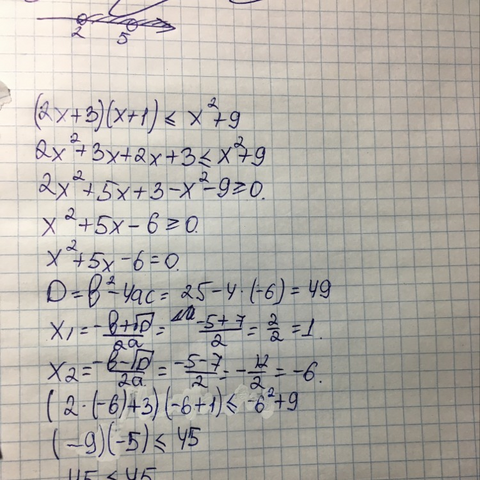 2 5
(2x+3)(x+1) ≤ x²+9
2x²+3x+2x+3 ≤ x²+9
2x²+5x+3-x²-9 ≥ 0.
x²+5x-6 ≥ 0.
x²+5x-6=0.
D=b²-4ac= 25-4·(-6)=49
x₁= (-b+√D)/2a = (-5+7)/2 = 2/2 =1.
x₂= (-b-√D)/2a = (-5-7)/2 = -12/2 = -6.
(2·(-6)+3)(-6+1) ≤ -6²+9
(-9)(-5) ≤ 45
45 ≤ 45